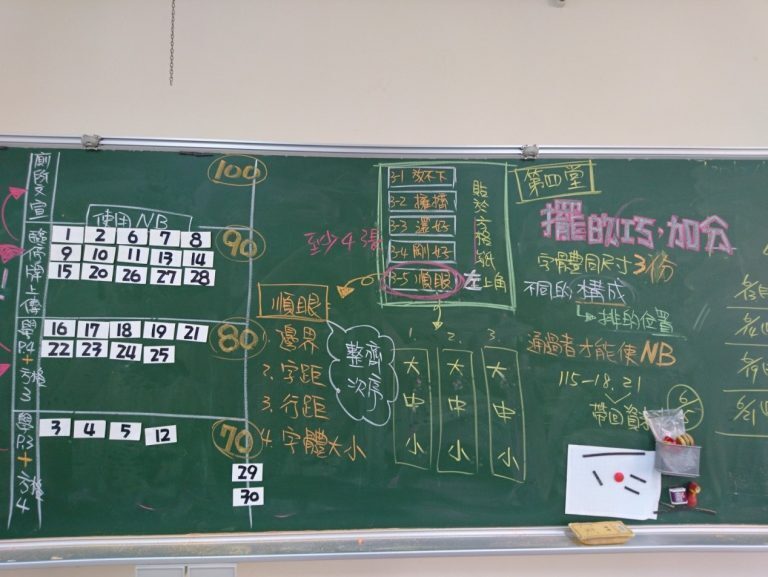 廁所文宣
100
使用NB
90
1 2 6 7 8
9 10 11 13 14
15 20 26 27 28
學P.4+方格3
80
16 17 18 19 21
22 23 24 25
學P.3+方格4
70
3 4 5 12
29
30
至少4張
3-1 放不下
3-2 擁擠
3-3 還好
3-4 剛好
3-5 順眼
貼於方格紙
左上角
順眼
1. 邊界
2. 字距
3. 行距
4. 字體大小
整齊
次序
1. 2. 3.
大 大 大
中 中 中
小 小 小
第四堂
擺的巧,加分
字體體同尺寸3份
不同的構成
排的位置
通過者才能使NB
115-18.21
帶回資
6/5